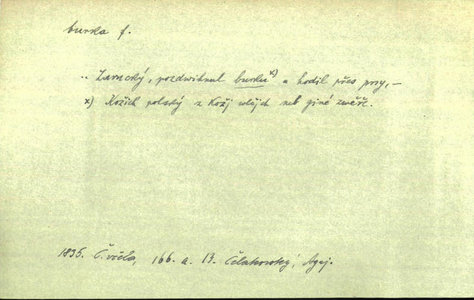 burka f.
.. Zarucký, pozdwihnul burku x) a hodil přes prsy, –
x) Kožich polský z koží wlčjch neb giné zwěře.
1835. Č. včela, 166. a. 13. Čelakovský,